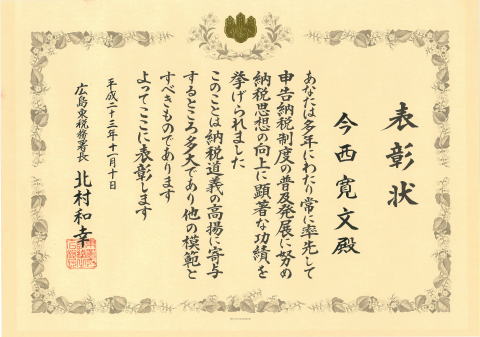 表彰状
今西寛文殿
あなたは多年にわたり常に率先して
申告納税制度の普及発展に努め
納税思想の向上に顕著な功績を
挙げられました
このことは納税道義の高揚に寄与
するところ多大であり他の模範と
すべきものであります
よってここに表彰します
平成二十三年十一月十日
広島東税務署長 北村和幸